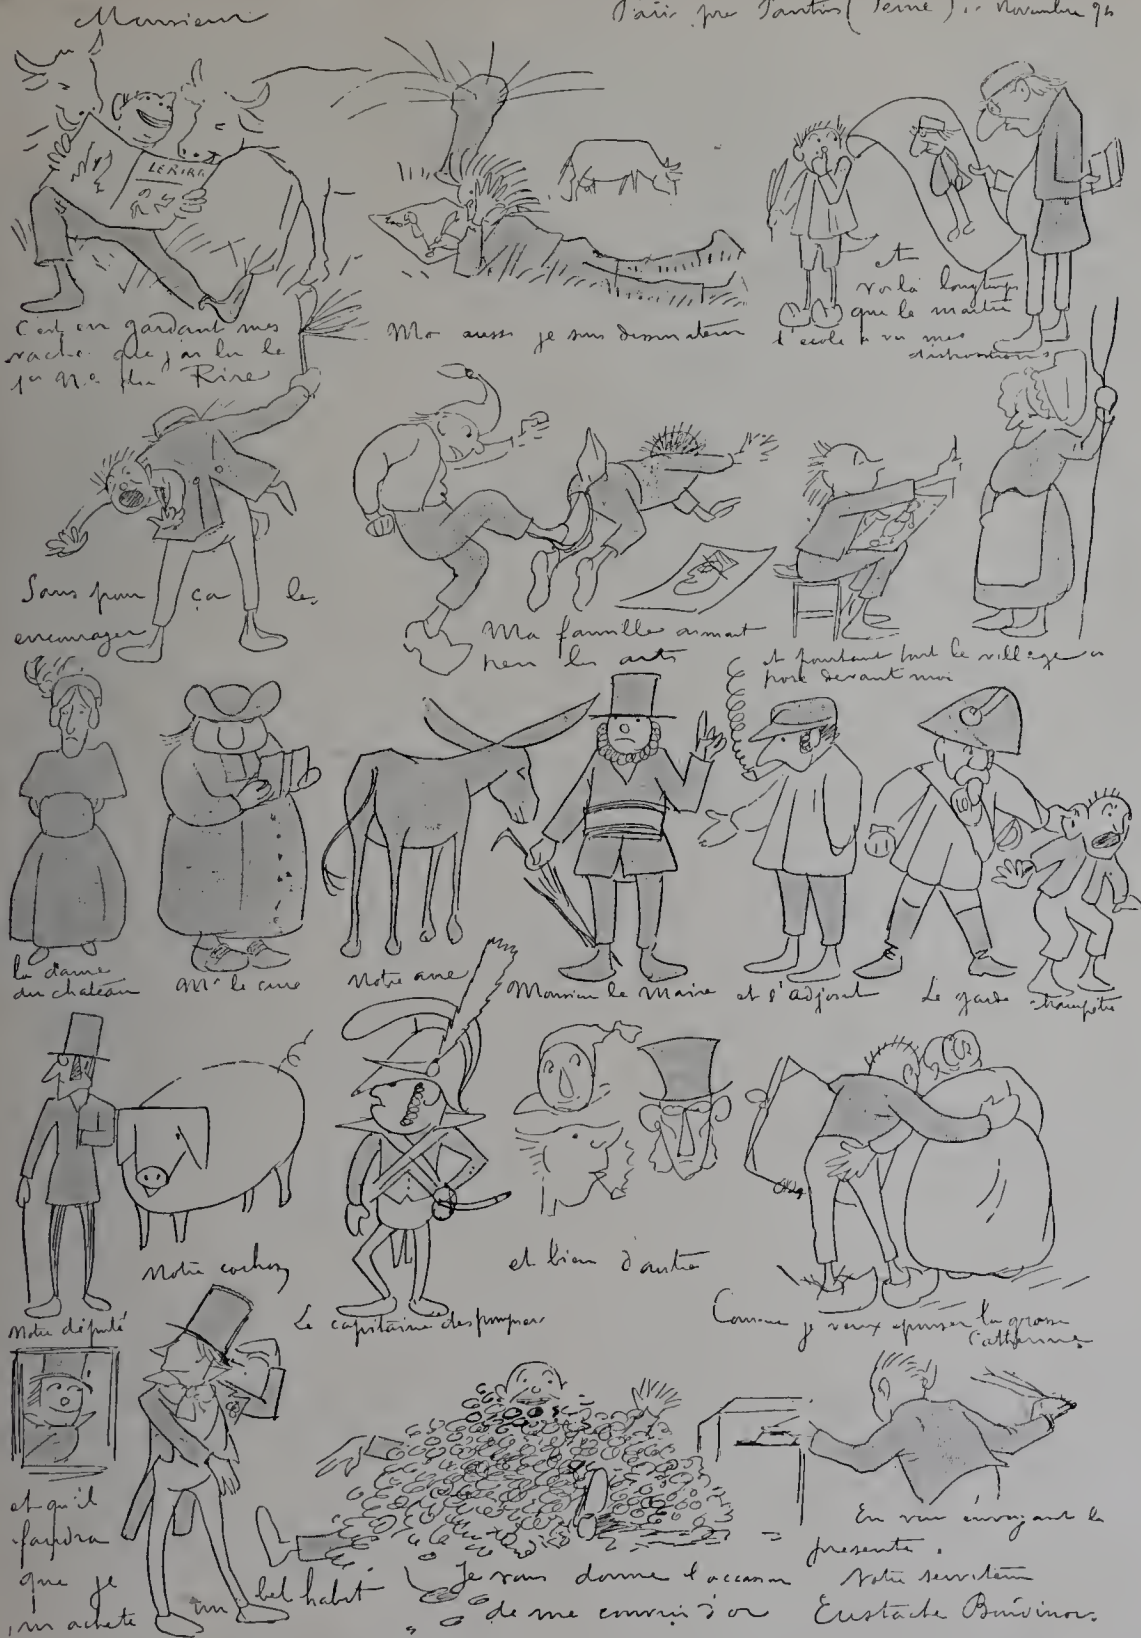 Monsieur
Paris par Pantin (Seine), Novembre 94
LE RIRE
C'est en gardant mes
vaches que j'ai lu le
1er No du Rire
Moi aussi je suis dessinateur
et
voilà longtemps
que le maître
d'école a vu mes
dispositions
Sans pour ça les
encourager
Ma famille aimant
peu les arts
et pourtant tout le village a
posé devant moi
la dame
du chateau
Mr le curé
Notre ane
Monsieur le Maire
et l'adjoint
Le garde
champêtre
Notre député
Notre cochon
Le capitaine des pompiers
et bien d'autre
Comme je veux épouser la grosse
Catherine
et qu'il
faudra
que je
m'achete
un bel habit
Je vous donne l'occasion
de me couvrir d'or
En vous envoyant la
presente.
Votre serviteur
Eustache